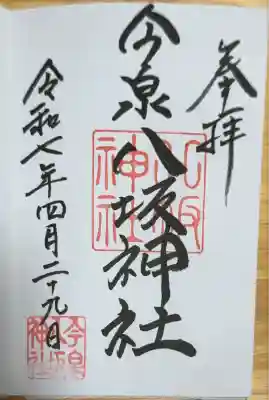 奉拝
今泉八坂神社
八坂
神社
令和七年四月二十九日
今泉
八坂
神社